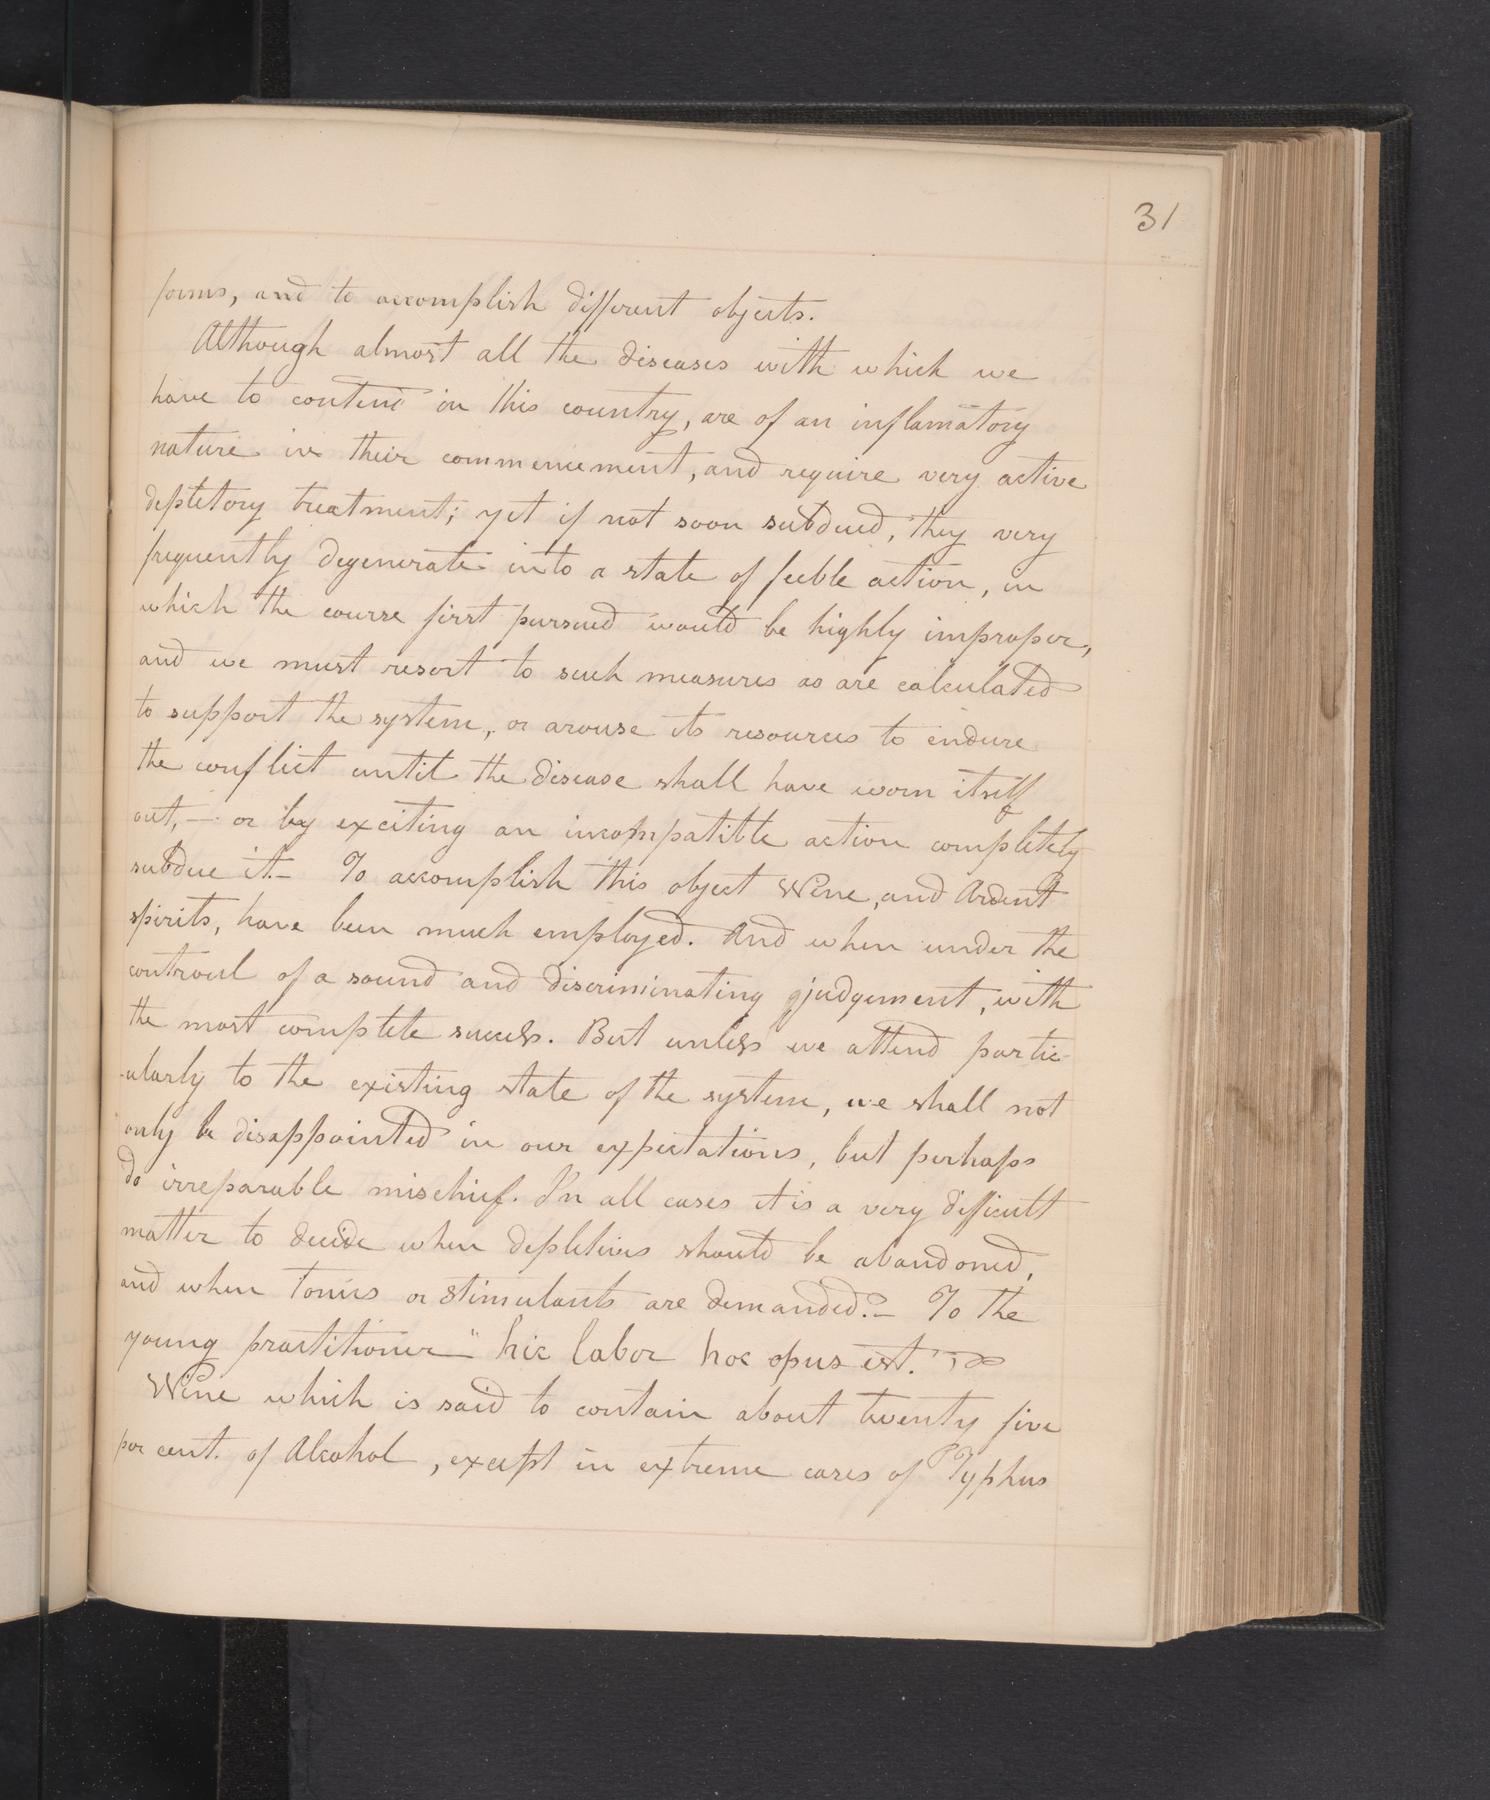 31
forms, and to accomplish different objects.
Although almost all the diseases with which we
have to contend in this country, are of an inflamatory
nature in their commencement, and require very active
depletory treatment; yet if not soon subdued, they very
frequently degenerate into a state of feeble action, in
which the course first pursued would be highly improper,
and we must resort to such measures as are calculated
to support the system, or arouse its resources to endure
the conflict until the disease shall have worn itself
out, — or by exciting an incompatible action completely
subdue it. — To accomplish this object Wine, and Ardent
spirits, have been much employed. And when under the
controul of a sound and discriminating judgement, with
the most complete success. But unless we attend partic-
-ularly to the existing state of the system, we shall not
only be disappointed in our expectations, but perhaps
do irreparable mischief. In all cases it is a very difficult
matter to decide when depletives should be abandoned,
and when Tonics or Stimulants are demanded? — To the
young practitioner "hic labor hoc opus est."
Wine which is said to contain about twenty five
per cent. of Alcohol, except in extreme cases of Typhus